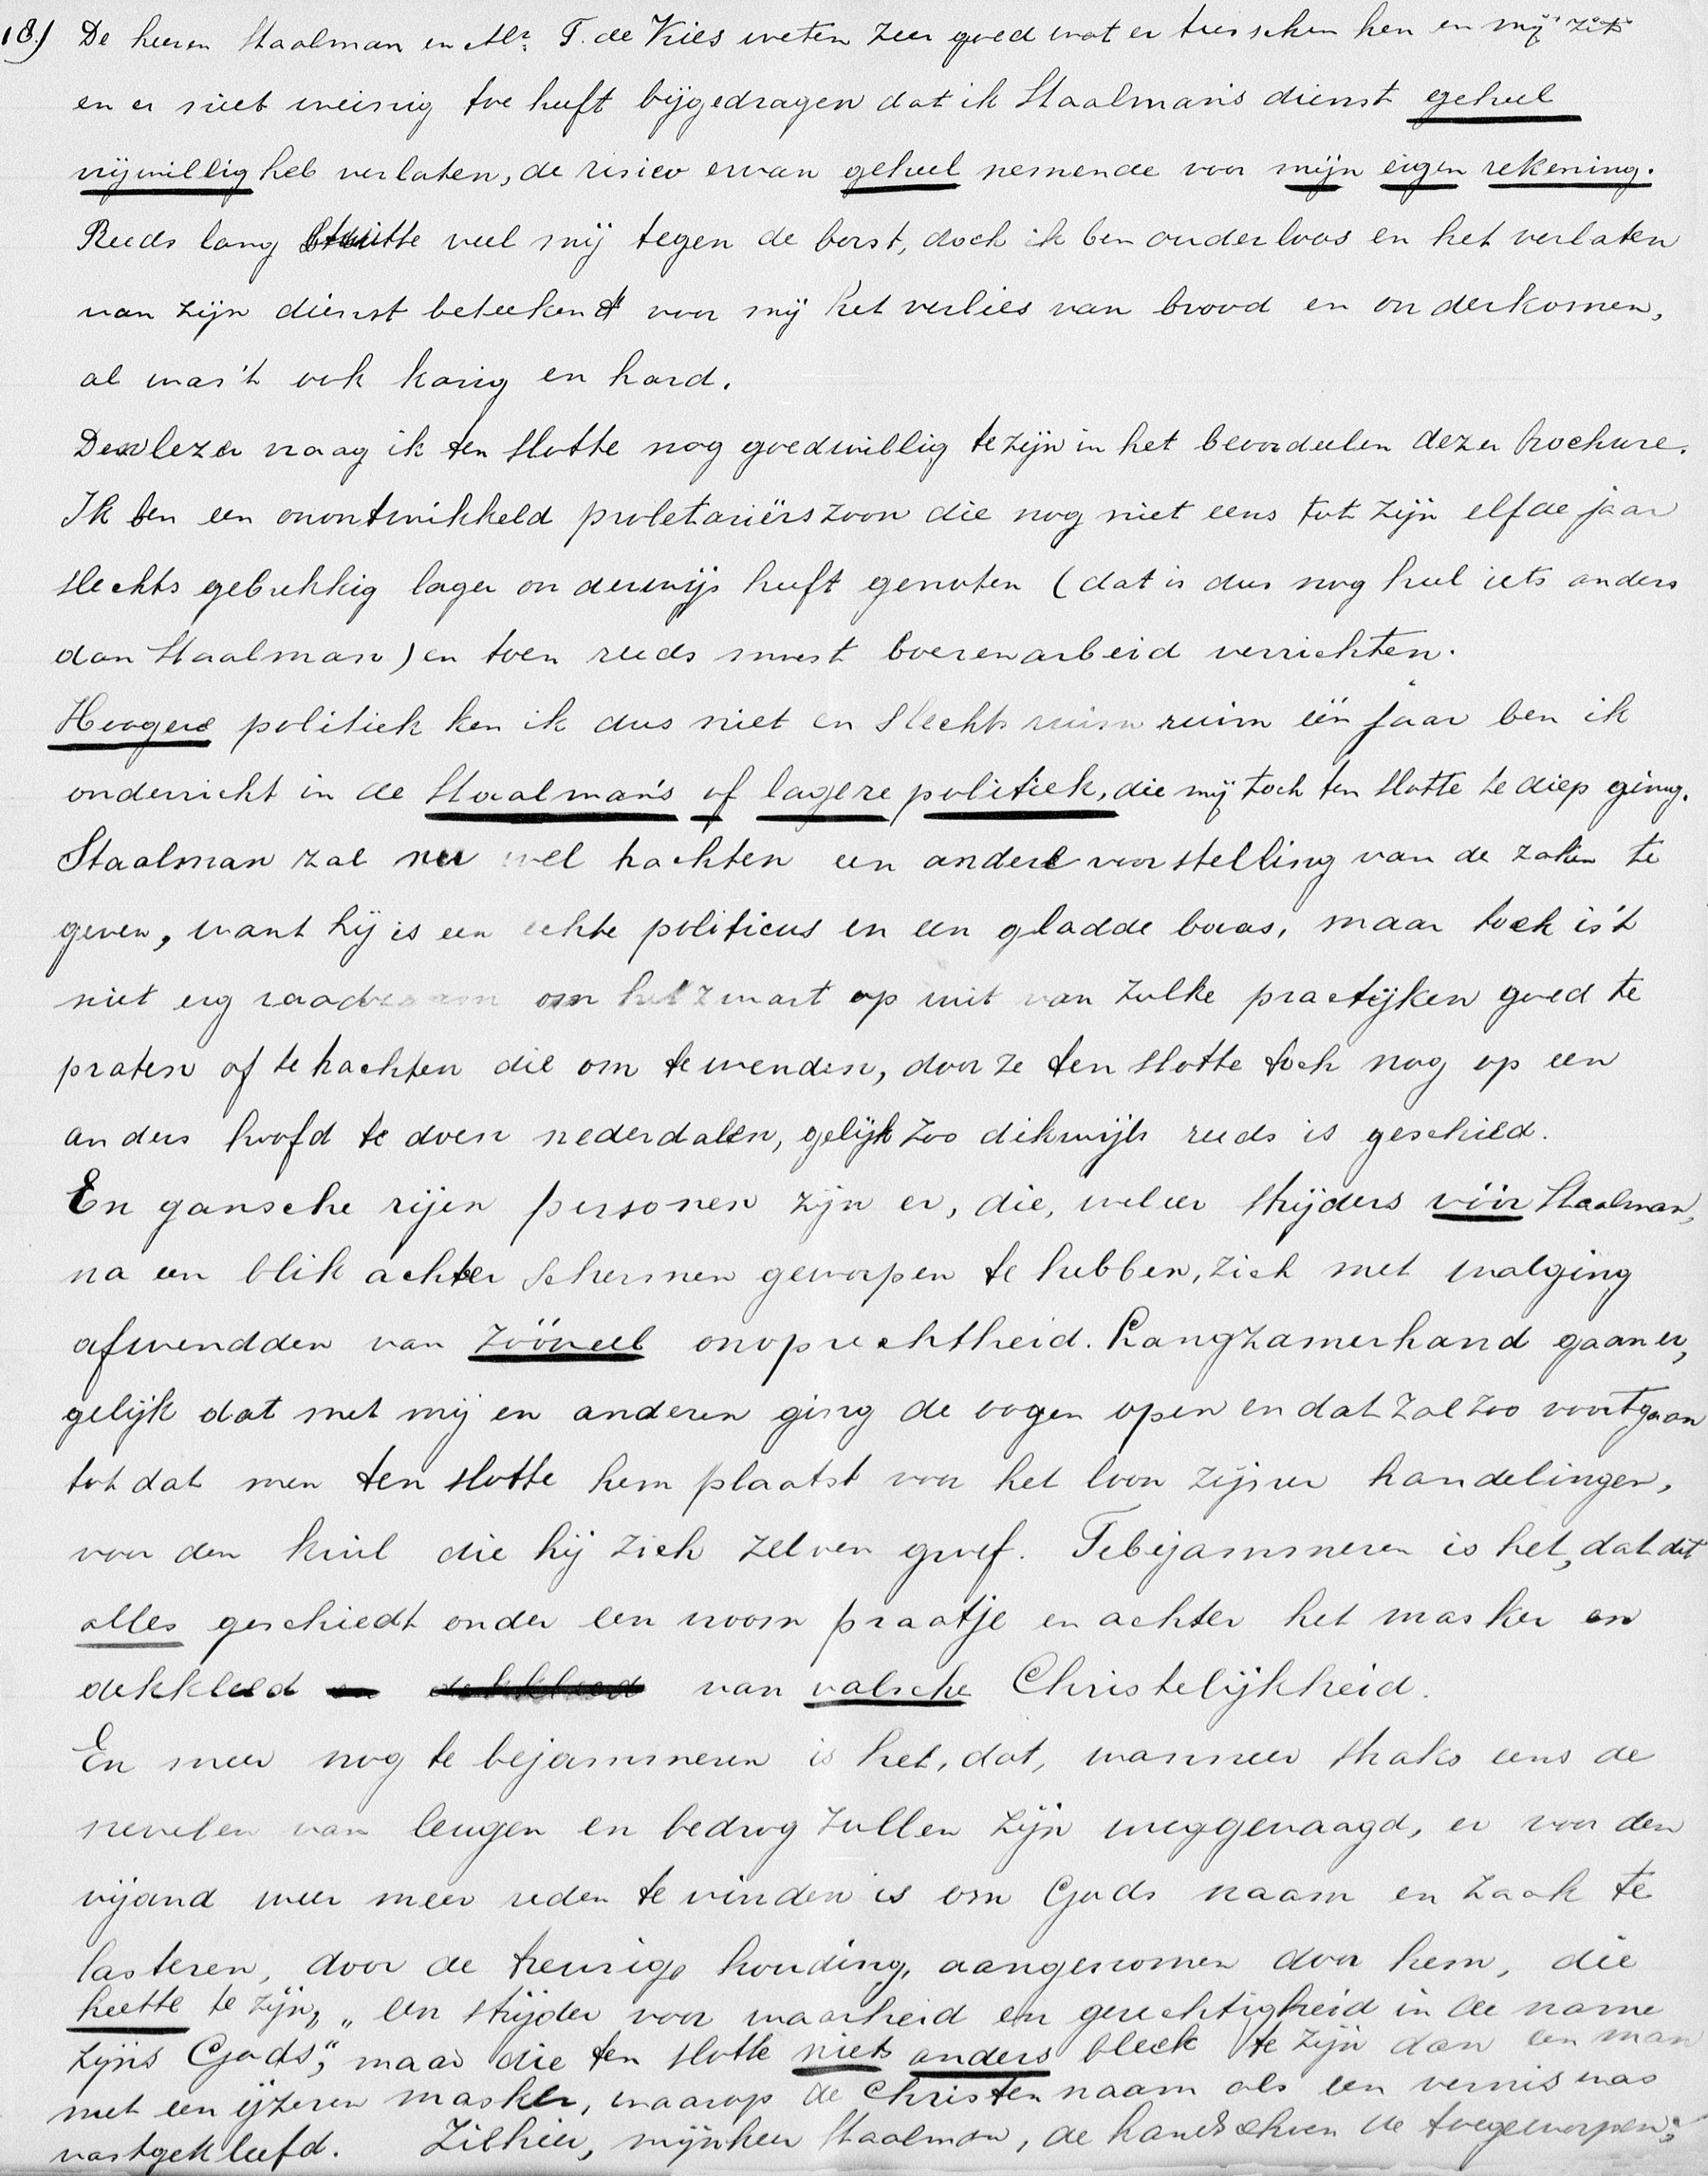 18.) De heeren Staalman en Mr. T. de Vries weten zeer goed wat er tusschen hen en mij zit
en er niet weinig toe heeft bijgedragen dat ik Staalman's dienst geheel
vrijwillig heb verlaten, de risico ervan geheel nemende voor mijn eigen rekening.
Reeds lang stuitte veel mij tegen de borst, doch ik ben ouderloos en het verlaten
van zijn dienst beteekend voor mij het verlies van brood en onderkomen,
al was 't ook karig en hard.
Den lezer vraag ik ten slotte nog goedwillig te zijn in het beoordeelen dezer brochure.
Ik ben een onontwikkeld proletariërszoon die nog niet eens tot zijn elfde jaar
slechts gebrekkig lager onderwijs heeft genoten (dat is dus nog heel iets anders
dan Staalman) en toen reeds moest boerenarbeid verrichten.
Hoogere politiek ken ik dus niet en slechts ruim ruim één jaar ben ik
onderricht in de Staalman's of lagere politiek, die mij toch ten slotte te diep ging.
Staalman zal nu wel trachten een andere voorstelling van de zaken te
geven, want hij is een echte politicus en een gladde baas, maar toch is 't
niet erg raadzaam om het zwart op wit van zulke practijken goed te
praten of te trachten die om te wenden, door ze ten slotte toch nog op een
anders hoofd te doen nederdalen, gelijk zoo dikwijls reeds is geschied.
En gansche rijen personen zijn er, die, weleer strijders vóór Staalman,
na een blik achter schermen geworpen te hebben, zich met walging
afwendden van zóóveel onoprechtheid. Langzamerhand gaan er,
gelijk dat met mij en anderen ging de oogen open en dat zal zoo voortgaan
tot dat men ten slotte hem plaatst voor het loon zijner handelingen,
voor den kuil die hij zich zelven groef. Te bejammeren is het, dat dit
alles geschiedt onder een vroom praatje en achter het masker en
dekkleed en dekkleed van valsche Christelijkheid.
En meer nog te bejammeren is het, dat, wanneer straks eens de
nevelen van leugen en bedrog zullen zijn weggevaagd, er voor den
vijand weer meer reden te vinden is om Gods naam en zaak te
lasteren, door de treurige houding, aangenomen door hem, die
heette te zijn, „een strijder voor waarheid en gerechtigheid in de name
zijns Gods", maar die ten slotte niets anders bleek te zijn dan een man
met een ijzeren masker, waarop de Christennaam als een vernis was
vastgekleefd. Ziehier, mijnheer Staalman, de handschoen U toegeworpen;